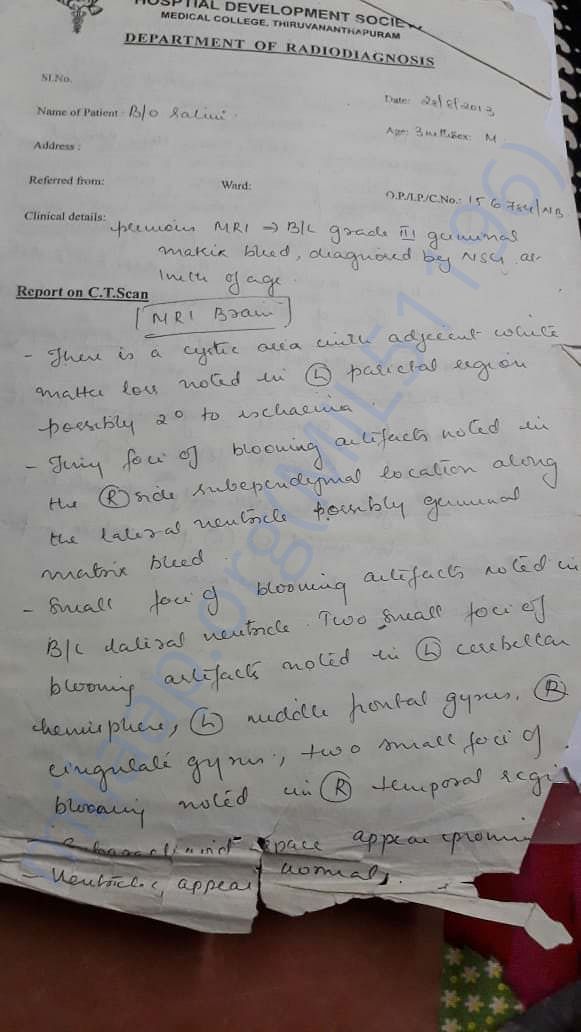 HOSPTIAL DEVELOPMENT SOCIETY
MEDICAL COLLEGE, THIRUVANANTHAPURAM
DEPARTMENT OF RADIODIAGNOSIS
Sl.No.
Date: 28/8/2013
Name of Patient B/O Salini
Age: 3 mths Sex: M
Address :
Referred from: Ward: O.P./I.P./C.No.: 156784/NB
Clinical details: previous MRI → B/L grade III germinal
matrix bleed, diagnosed by NSG at
1mth of age.
Report on C.T.Scan
MRI Brain
- There is a cystic area with adjacent white
matter loss noted in (L) parietal region
possibly 2° to ischaemia.
- Tiny foci of blooming artifacts noted in
the (R) side subependymal location along
the lateral ventricle possibly germinal
matrix bleed.
- Small foci of blooming artifacts noted in
B/L lateral ventricle. Two small foci of
blooming artifacts noted in (L) cerebellar
hemisphere, (L) middle frontal gyrus, (R)
cingulate gyrus, two small foci of
blooming noted in (R) temporal regi
- space appear promin
- Ventricles appear normal.
milaap.org(MIL51196)